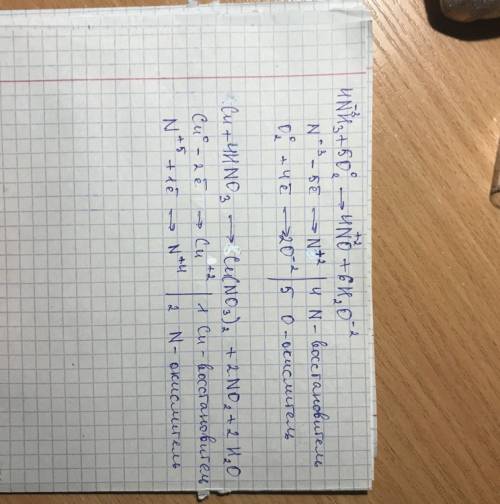 4N⁻³H₃ + 5O₂⁰ → 4N⁺²O + 6H₂O⁻²
N⁻³ - 5ē → N⁺² | 4 N - восстановитель
O₂⁰ + 4ē → 2O⁻² | 5 O - окислитель
Cu + 4HNO₃ → Cu(NO₃)₂ + 2NO₂ + 2H₂O
Cu⁰ - 2ē → Cu⁺² | 1 Cu - восстановитель
N⁺⁵ + 1ē → N⁺⁴ | 2 N - окислитель